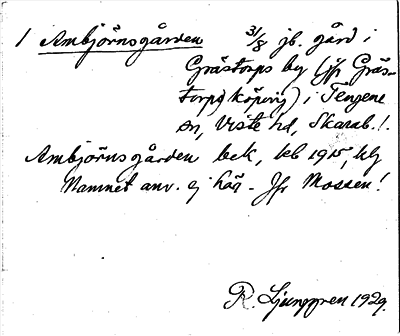 1 Ambjörnsgården 3/8 jb. gård i
Grästorps by (jfr Gräs-
torps köping) i Tengene
sn, Viste hd, Skarab. l.
Ambjörnsgården bek, kb 1915, klg
Namnet anv. ej här. Jfr Mossen!
R. Ljunggren 1929.